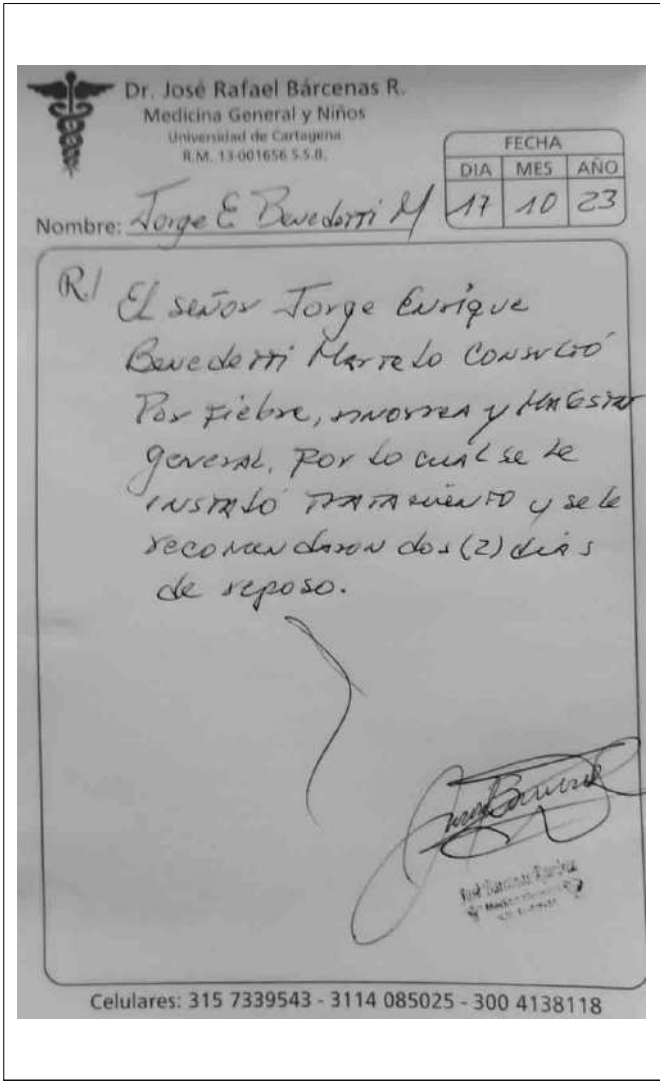 Dr. José Rafael Bárcenas R.
Medicina General y Niños
Universidad de Cartagena
R.M. 13-001656 S.S.B.
FECHA
DIA MES AÑO
17 10 23
Nombre: Jorge E Benedetti M
R./ El señor Jorge Enrique
Benedetti Martelo consultó
Por fiebre, rinorrea y malestar
general, por lo cual se le
instaló tratamiento y se le
recomendaron dos (2) días
de reposo.
José Bárcenas Ramírez
Celulares: 315 7339543 - 3114 085025 - 300 4138118